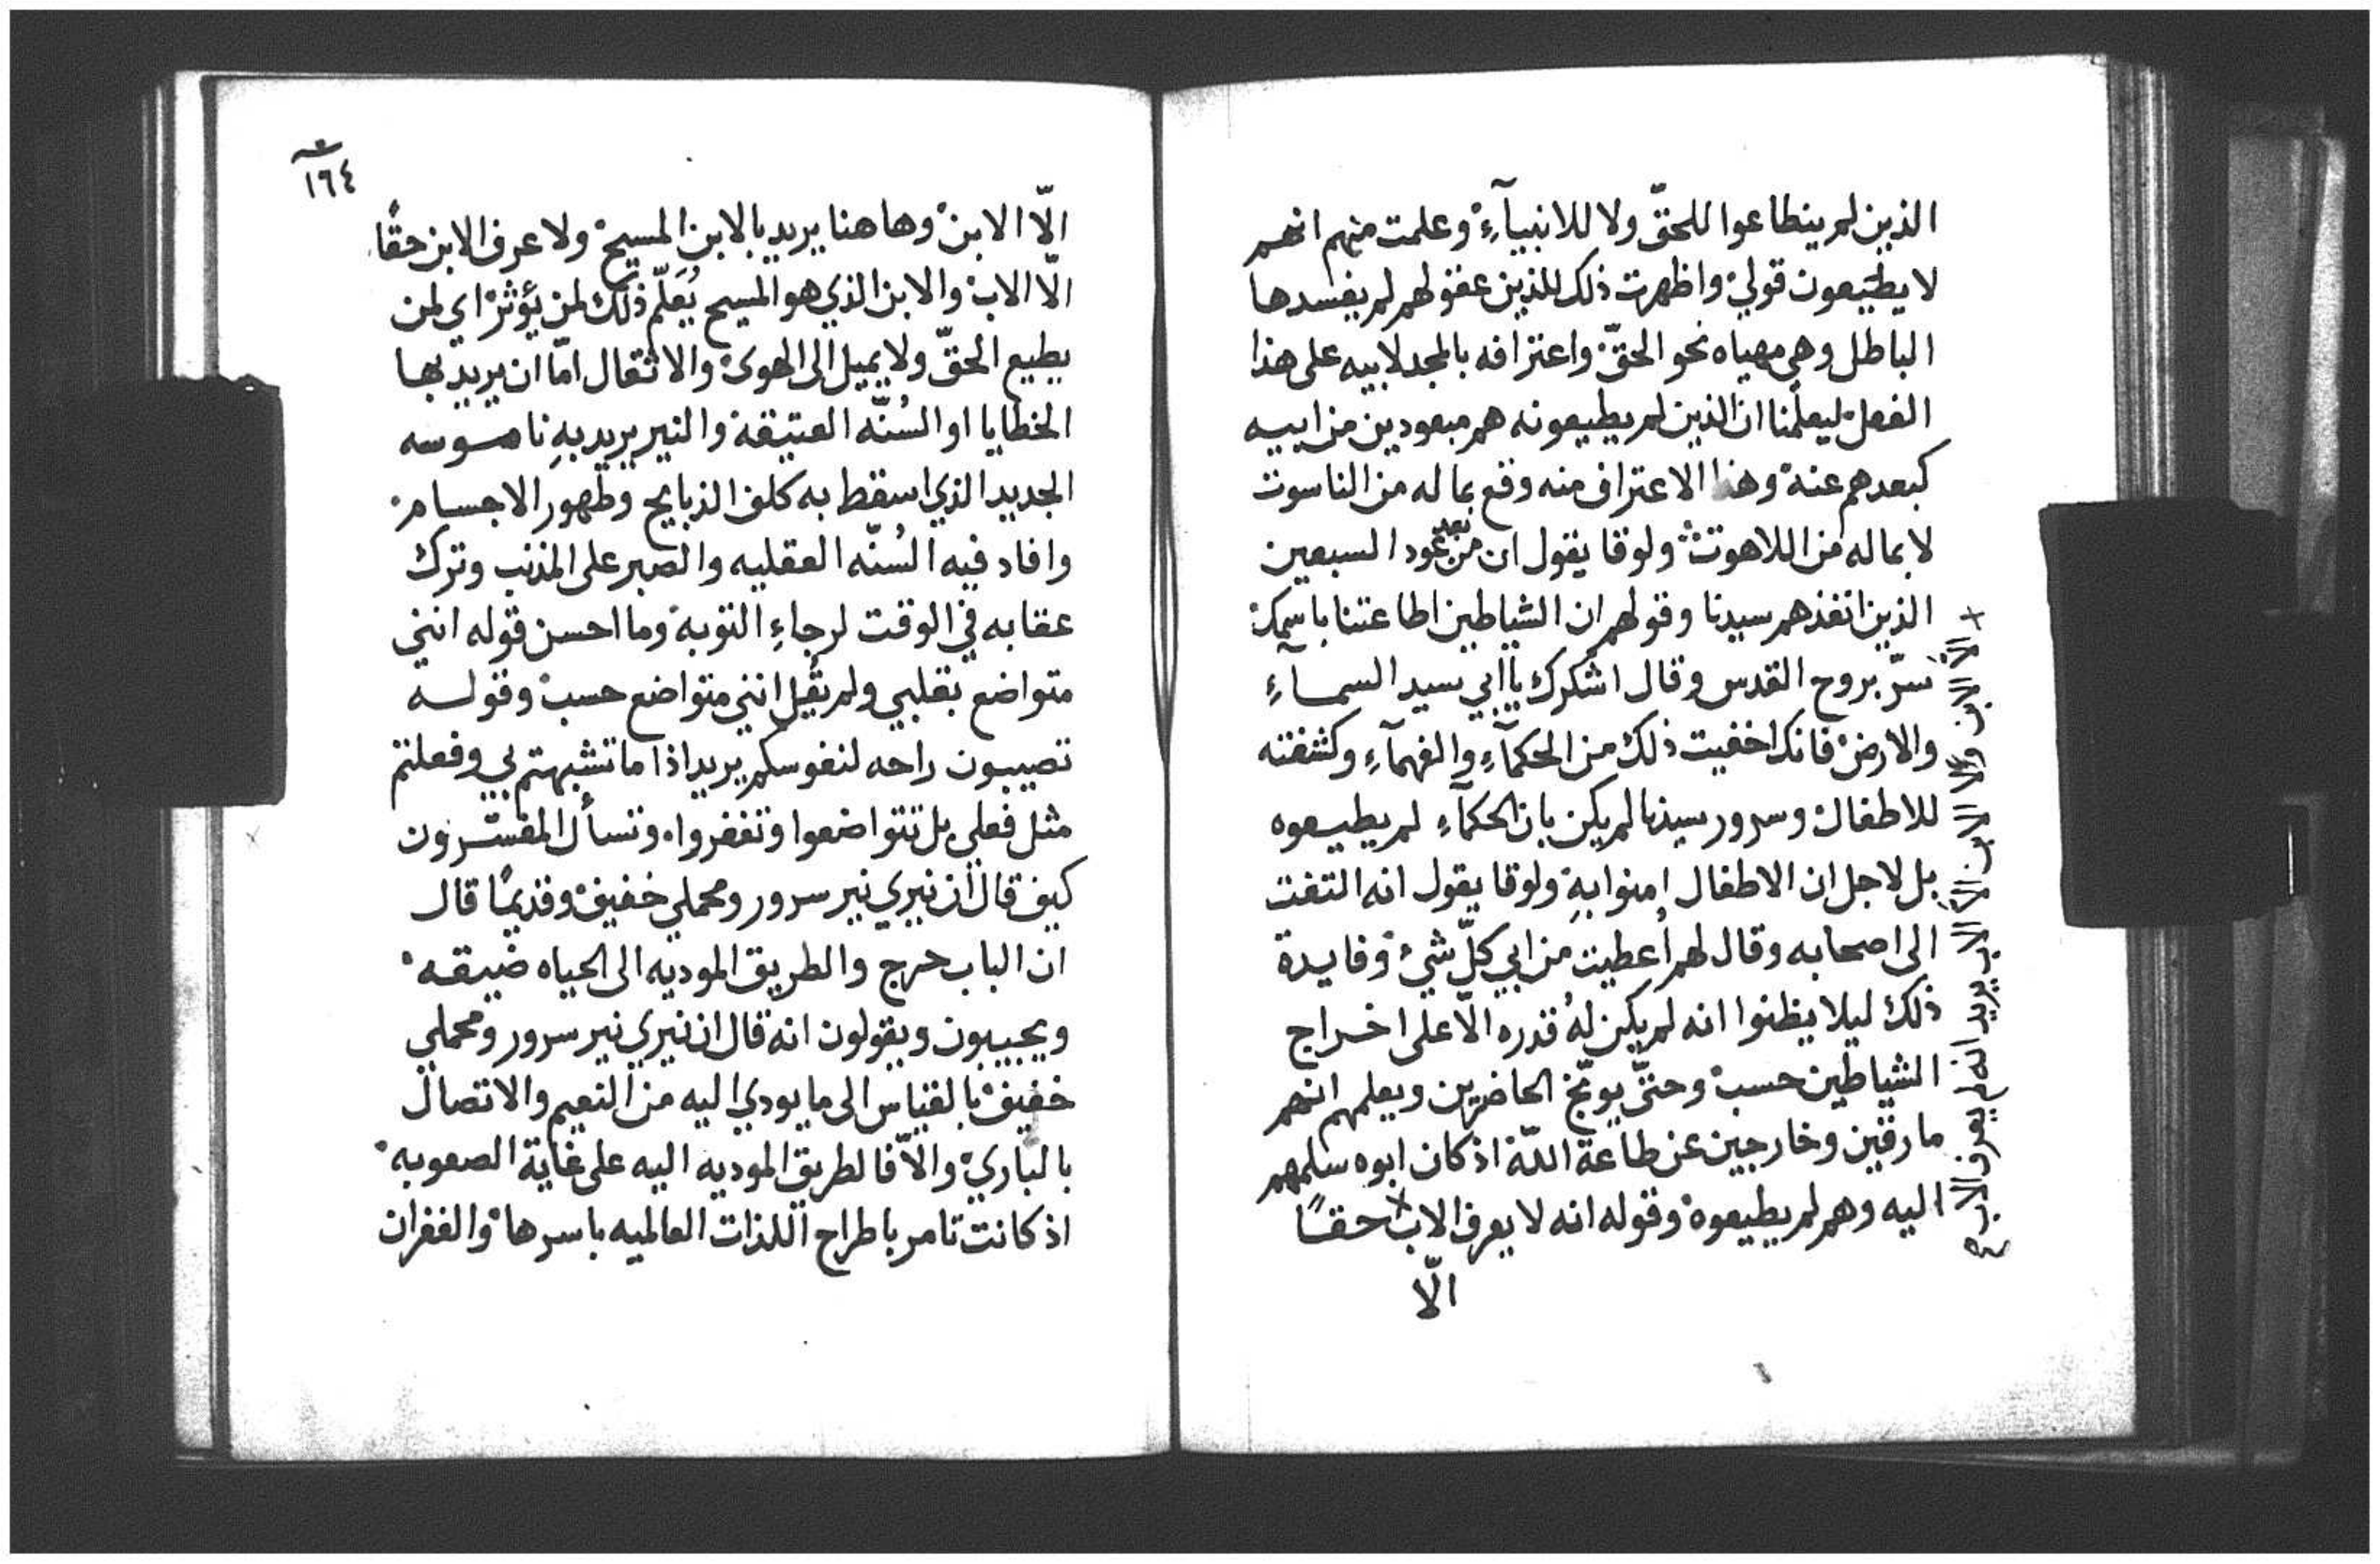 الذين لم ينطاعوا للحقّ ولا للانبيآءِ وعلمت منهم انهم
لا يطيعون قولي واظهرت ذلك للذين عقولهم لم يفسدها
الباطل وهي مهياه نحو الحقّ واعترافه بالمجد لابيه على هذا
الفعل ليعلّمنا ان الذين لم يطيعونه هم مبعودين من ابيه
كبعدهم عنه وهذا الاعتراف منه وقع بما له من الناسوت
لا بماله من اللاهوت ولوقا يقول ان من بعد عود السبعين
الذين انفذهم سيدنا وقولهم ان الشياطين اطاعتنا باسمك
سرّ بروح القدس وقال اشكرك يا ابي سيد السماءِ
والارض فانك اخفيت ذلك من الحكمآءِ والفهمآءِ وكشفته
للاطفال وسرور سيدنا لم يكن بان الحكمآءِ لم يطيعوه
بل لاجل ان الاطفال امنوا بهِ ولوقا يقول انه التفت
الى اصحابه وقال لهم اُعطيت من ابي كلّ شيْ وفايدة
ذلك ليلا يظنوا انه لم يكن لهُ قدره الّا على اخراج
الشياطين حسب وحتّى يوبّخ الحاضرين ويعلمهم انهم
مارقين وخارجين عن طاعة اللّه اذ كان ابوه سلمهم
اليه وهم لم يطيعوه وقوله انه لا يعرف الاب حقًا
الّا
+ الّا الابن ولا الابن الّا الاب يريد انه لم يعرف الاب
١٦٤
الّا الابن وهاهنا يريد بالابن المسيح ولا عرف الابن حقًا
الّا الاب والابن الذي هو المسيح يُعَلّم ذلك لمن يؤثر اي لمن
يطيع الحقّ ولا يميل الى الهوى والاثقال امّا ان يريد بها
الخطايا او السُنّه العتيقة والنير يريد بهِ ناموسه
الجديد الذي اسقط به كلف الذبايح وطهور الاجسام
وافاد فيه السُنّه العقليه والصبر على المذنب وترك
عقابه في الوقت لرجاءِ التوبه وما احسن قوله انني
متواضع بقلبي ولم يقُل انني متواضع حسب وقوله
تصيبون راحه لنفوسكم يريد اذا ما تشبهتم بي وفعلتم
مثل فعلي بل تتواضعوا وتغفروا وتسأل المفسّرون
كيف قال ان نيري نير سرور ومحملي خفيف وقديمًا قال
ان الباب حرج والطريق الموديه الى الحياه ضيقه
ويجيبون ويقولون انه قال ان نيري نير سرور ومحملي
خفيف بالقياس الى ما يودي اليه من النعيم والاتصال
بالباري والّا فالطريق الموديه اليه على غاية الصعوبه
اذ كانت تامر باطراح اللذات العالميه باسرها والغفران